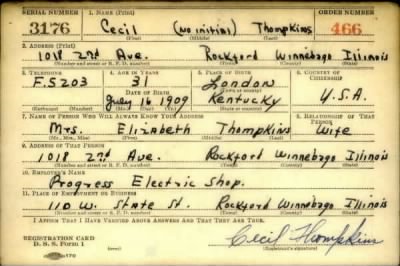 SERIAL NUMBER 1. NAME (Print) ORDER NUMBER
3176 Cecil (No initial) Thompkins 466
(First) (Middle) (Last)
2. ADDRESS (Print)
1018 22d Ave. Rockford Winnebago Illinois
(Number and street or R. F. D. number) (Town) (County) (State)
3. TELEPHONE 4. AGE IN YEARS 5. PLACE OF BIRTH 6. COUNTRY OF CITIZENSHIP
F.5203 31 London
DATE OF BIRTH (Town or county)
July 16 1909 Kentucky U.S.A.
(Exchange) (Number) (Mo.) (Day) (Yr.) (State or country)
7. NAME OF PERSON WHO WILL ALWAYS KNOW YOUR ADDRESS 8. RELATIONSHIP OF THAT PERSON
Mrs. Elizabeth Thompkins Wife
(Mr., Mrs., Miss) (First) (Middle) (Last)
9. ADDRESS OF THAT PERSON
1018 22d Ave. Rockford Winnebago Illinois
(Number and street or R. F. D. number) (Town) (County) (State)
10. EMPLOYER'S NAME
Progress Electric Shop.
11. PLACE OF EMPLOYMENT OR BUSINESS
110 W. State St. Rockford Winnebago Illinois
(Number and street or R. F. D. number) (Town) (County) (State)
I AFFIRM THAT I HAVE VERIFIED ABOVE ANSWERS AND THAT THEY ARE TRUE.
REGISTRATION CARD
D. S. S. Form 1
Cecil Thompkins
(Registrant's signature)